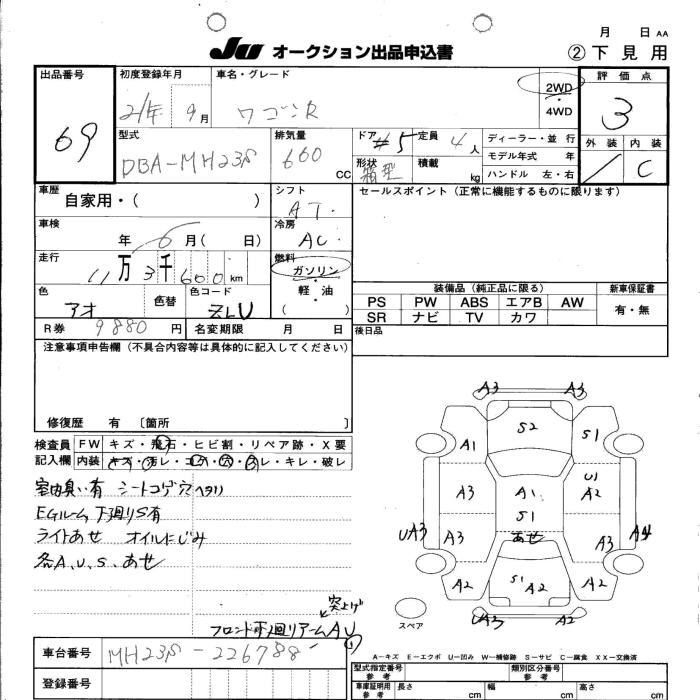 月 日 AA
JU オークション出品申込書
② 下見用
出品番号 69
初度登録年月 21年 9月
車名・グレード ワゴンR
2WD・4WD
評価点 3
外装 / 内装 C
型式 DBA-MH23S
排気量 660 CC
ドア #5
形状 箱型
定員 4人
積載 kg
ディーラー・並行
モデル年式 年
ハンドル 左・右
車歴 自家用・( )
シフト AT
セールスポイント(正常に機能するものに限ります)
車検 年 6月( 日)
冷房 AC
走行 11万3千600km
燃料 ガソリン・軽油 ( )
色 アオ 色替
色コード ZLU
装備品(純正品に限る)
PS PW ABS エアB AW
SR ナビ TV カワ
新車保証書 有・無
R券 9880円
名変期限 月 日
後日品
注意事項申告欄(不具合内容等は具体的に記入してください)
修復歴 有 〔箇所 〕
検査員記入欄
FW キズ・飛石・ヒビ割・リペア跡・X要
内装 キズ・汚レ・コゲ・穴・スレ・キレ・破レ
室内臭い有 シートコゲ穴ヘタリ
EGルーム下廻りS有
ライトあせ オイルにじみ
各A、U、S、あせ
突上げ
フロント下廻りアームAU
A3 A3
S2
A1 S1
A3 A1 U1 A2
S1
UA3 A3 あせ A3 A4
A2 S1 A2 A2
UA3 A2
スペア
A−キズ E−エクボ U−凹み W−補修跡 S−サビ C−腐食 XX−交換済
車台番号 MH23S-226788
登録番号
型式指定番号 参考
類別区分番号 参考
車庫証明用 参考
長さ cm
幅 cm
高さ cm